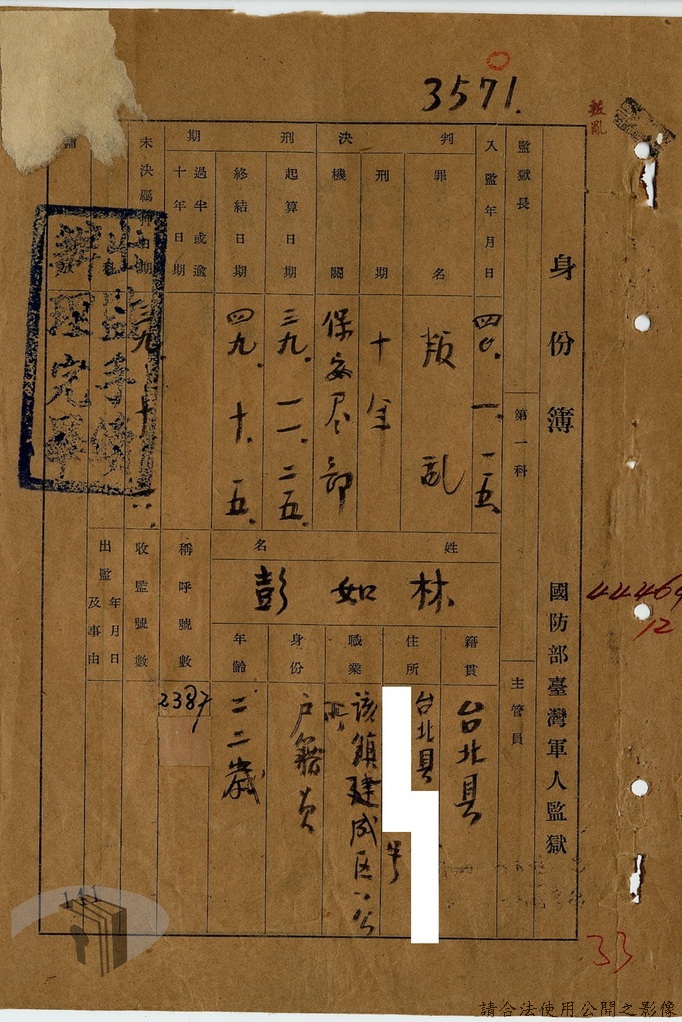 3571.
叛亂
身份簿
國防部臺灣軍人監獄
監獄長
第一科
主管員
入監年月日
四〇.一.一五.
判決
罪名
叛乱
刑期
十年
機關
保安司令部
刑期
起算日期
三九.一一.二五.
終結日期
四九.十.五.
過半或逾十年日期
未決羈押日期
三九
出監手續
辦理完畢
姓名
林如彭
籍貫
台北县
住所
台北县
号
職業
該鎮建成区公所
身份
户籍員
年齡
二二歲
稱呼號數
2387
收監號數
出監年月日及事由
44469
12
33
請合法使用公開之影像